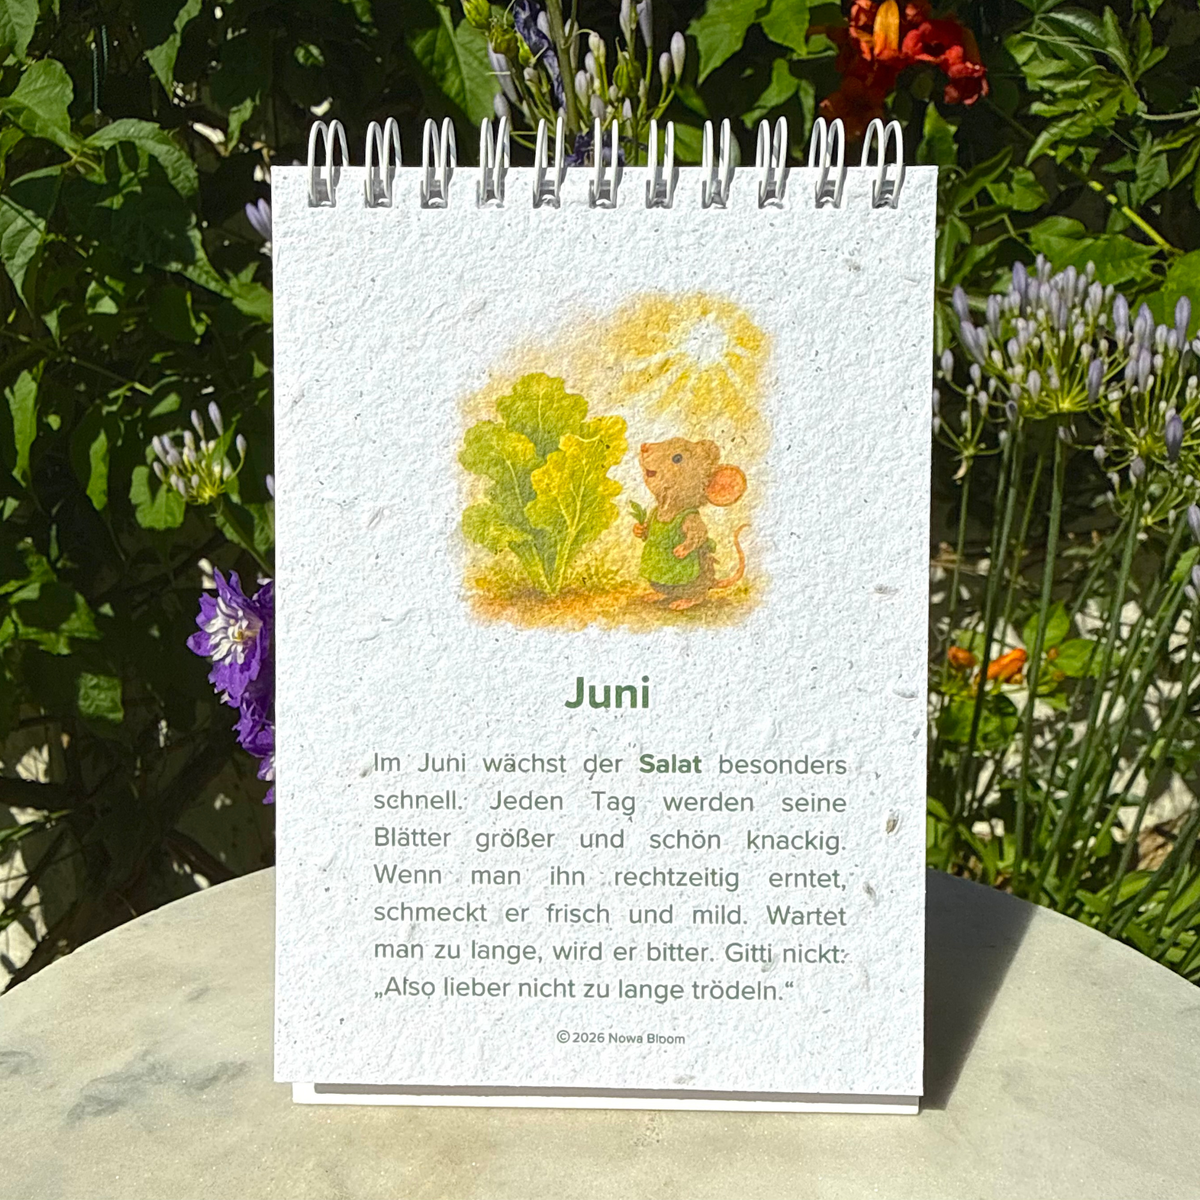 Juni
Im Juni wächst der Salat besonders
schnell. Jeden Tag werden seine
Blätter größer und schön knackig.
Wenn man ihn rechtzeitig erntet,
schmeckt er frisch und mild. Wartet
man zu lange, wird er bitter. Gitti nickt:
„Also lieber nicht zu lange trödeln.“
© 2026 Nowa Bloom